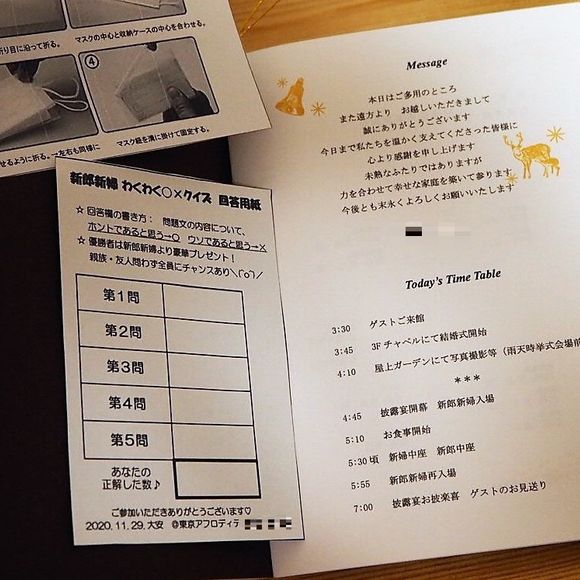 折り目に沿って折る。
マスクの中心と収納ケースの中心を合わせる。
④
せるように折る。←左右も同様に
マスク紐を溝に掛けて固定する。
新郎新婦 わくわく○×クイズ 回答用紙
☆ 回答欄の書き方： 問題文の内容について、
ホントであると思う→○ ウソであると思う→×
☆ 優勝者は新郎新婦より豪華プレゼント！
親族・友人問わず全員にチャンスあり＼(^o^)／
第1問
第2問
第3問
第4問
第5問
あなたの
正解した数♪
ご参加いただきありがとうございます♡
2020.11.29.大安 @東京アフロディテ
Message
本日はご多用のところ
また遠方より お越しいただきまして
誠にありがとうございます
今日まで私たちを温かく支えてくださった皆様に
心より感謝を申し上げます
未熟なふたりではありますが
力を合わせて幸せな家庭を築いて参ります
今後とも末永くよろしくお願いいたします
Today's Time Table
3:30 ゲストご来館
3:45 3F チャペルにて結婚式開始
4:10 屋上ガーデンにて写真撮影等（雨天時挙式会場前
***
4:45 披露宴開幕 新郎新婦入場
5:10 お食事開始
5:30頃 新婦中座 新郎中座
5:55 新郎新婦再入場
7:00 披露宴お披楽喜 ゲストのお見送り